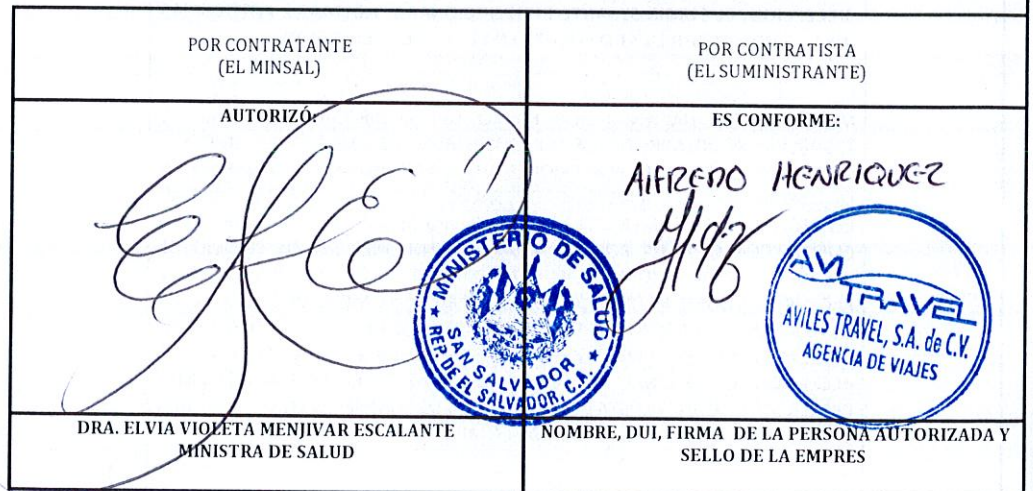 POR CONTRATANTE
(EL MINSAL)
POR CONTRATISTA
(EL SUMINISTRANTE)
AUTORIZÓ:
ES CONFORME:
AlFREDO HENRIQUEZ
MINISTERIO DE SALUD
SAN SALVADOR
REP. DE EL SALVADOR, C.A.
AVI
TRAVEL
AVILES TRAVEL, S.A. de C.V.
AGENCIA DE VIAJES
DRA. ELVIA VIOLETA MENJIVAR ESCALANTE
MINISTRA DE SALUD
NOMBRE, DUI, FIRMA DE LA PERSONA AUTORIZADA Y
SELLO DE LA EMPRES